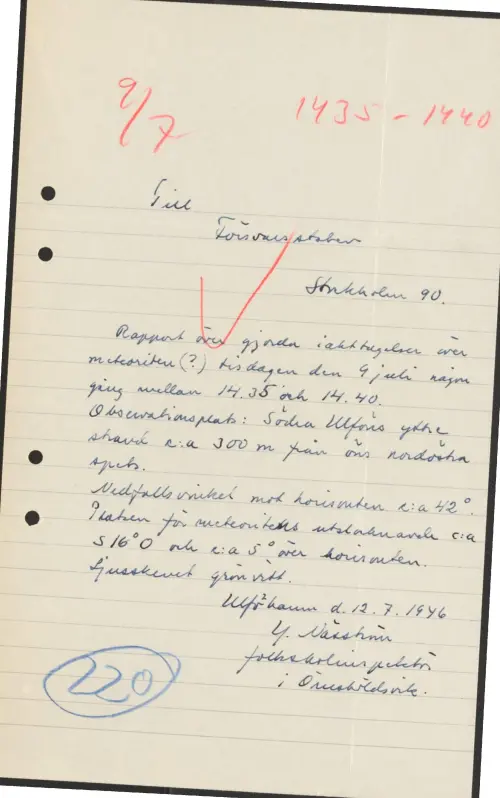 9/7
1435 - 1440
Till
Försvarsstaben
Stockholm 90.
Rapport över gjorda iakttagelser över
meteoriten (?) tisdagen den 9 juli någon
gång mellan 14.35 och 14.40.
Observationsplats: Södra Ulföns yttre
strand c:a 300 m från öns nordöstra
spets.
Nedfallsvinkel mot horisonten c:a 42°.
Platsen för meteoritens utslocknande c:a
S 16° O och c:a 5° över horisonten.
Ljusskenet grönvitt.
Ulföhamn d. 12.7.1946
Y. Näsström
folkskolinspektör
i Örnsköldsvik.
220